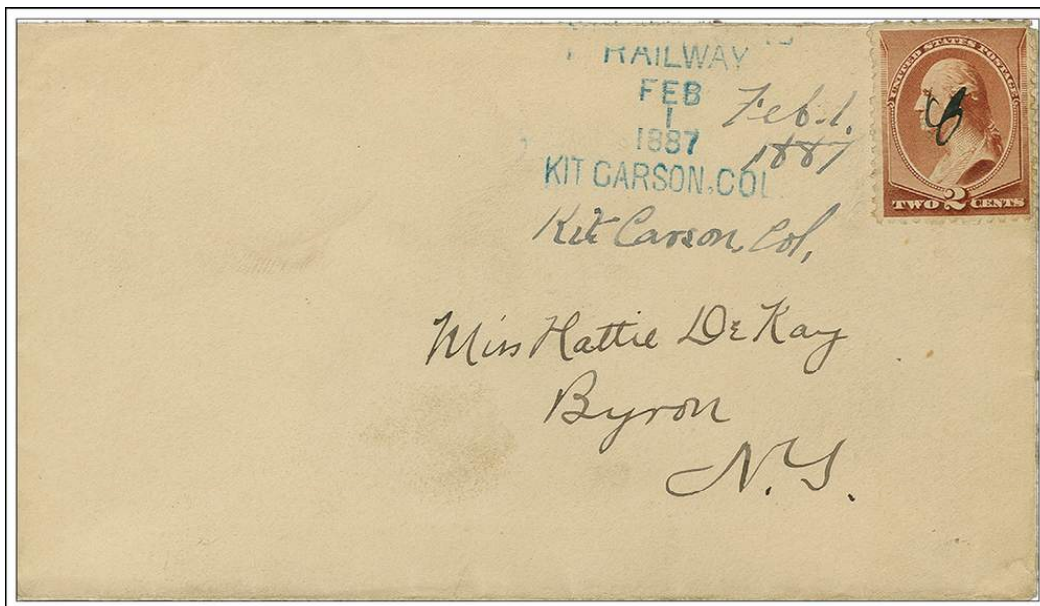 RAILWAY
FEB
1
1887
KIT CARSON, COL.
Feb. 1,
1887
Kit Carson, Col,
UNITED STATES POSTAGE
TWO 2 CENTS
Miss Hattie De Kay
Byron
N.Y.